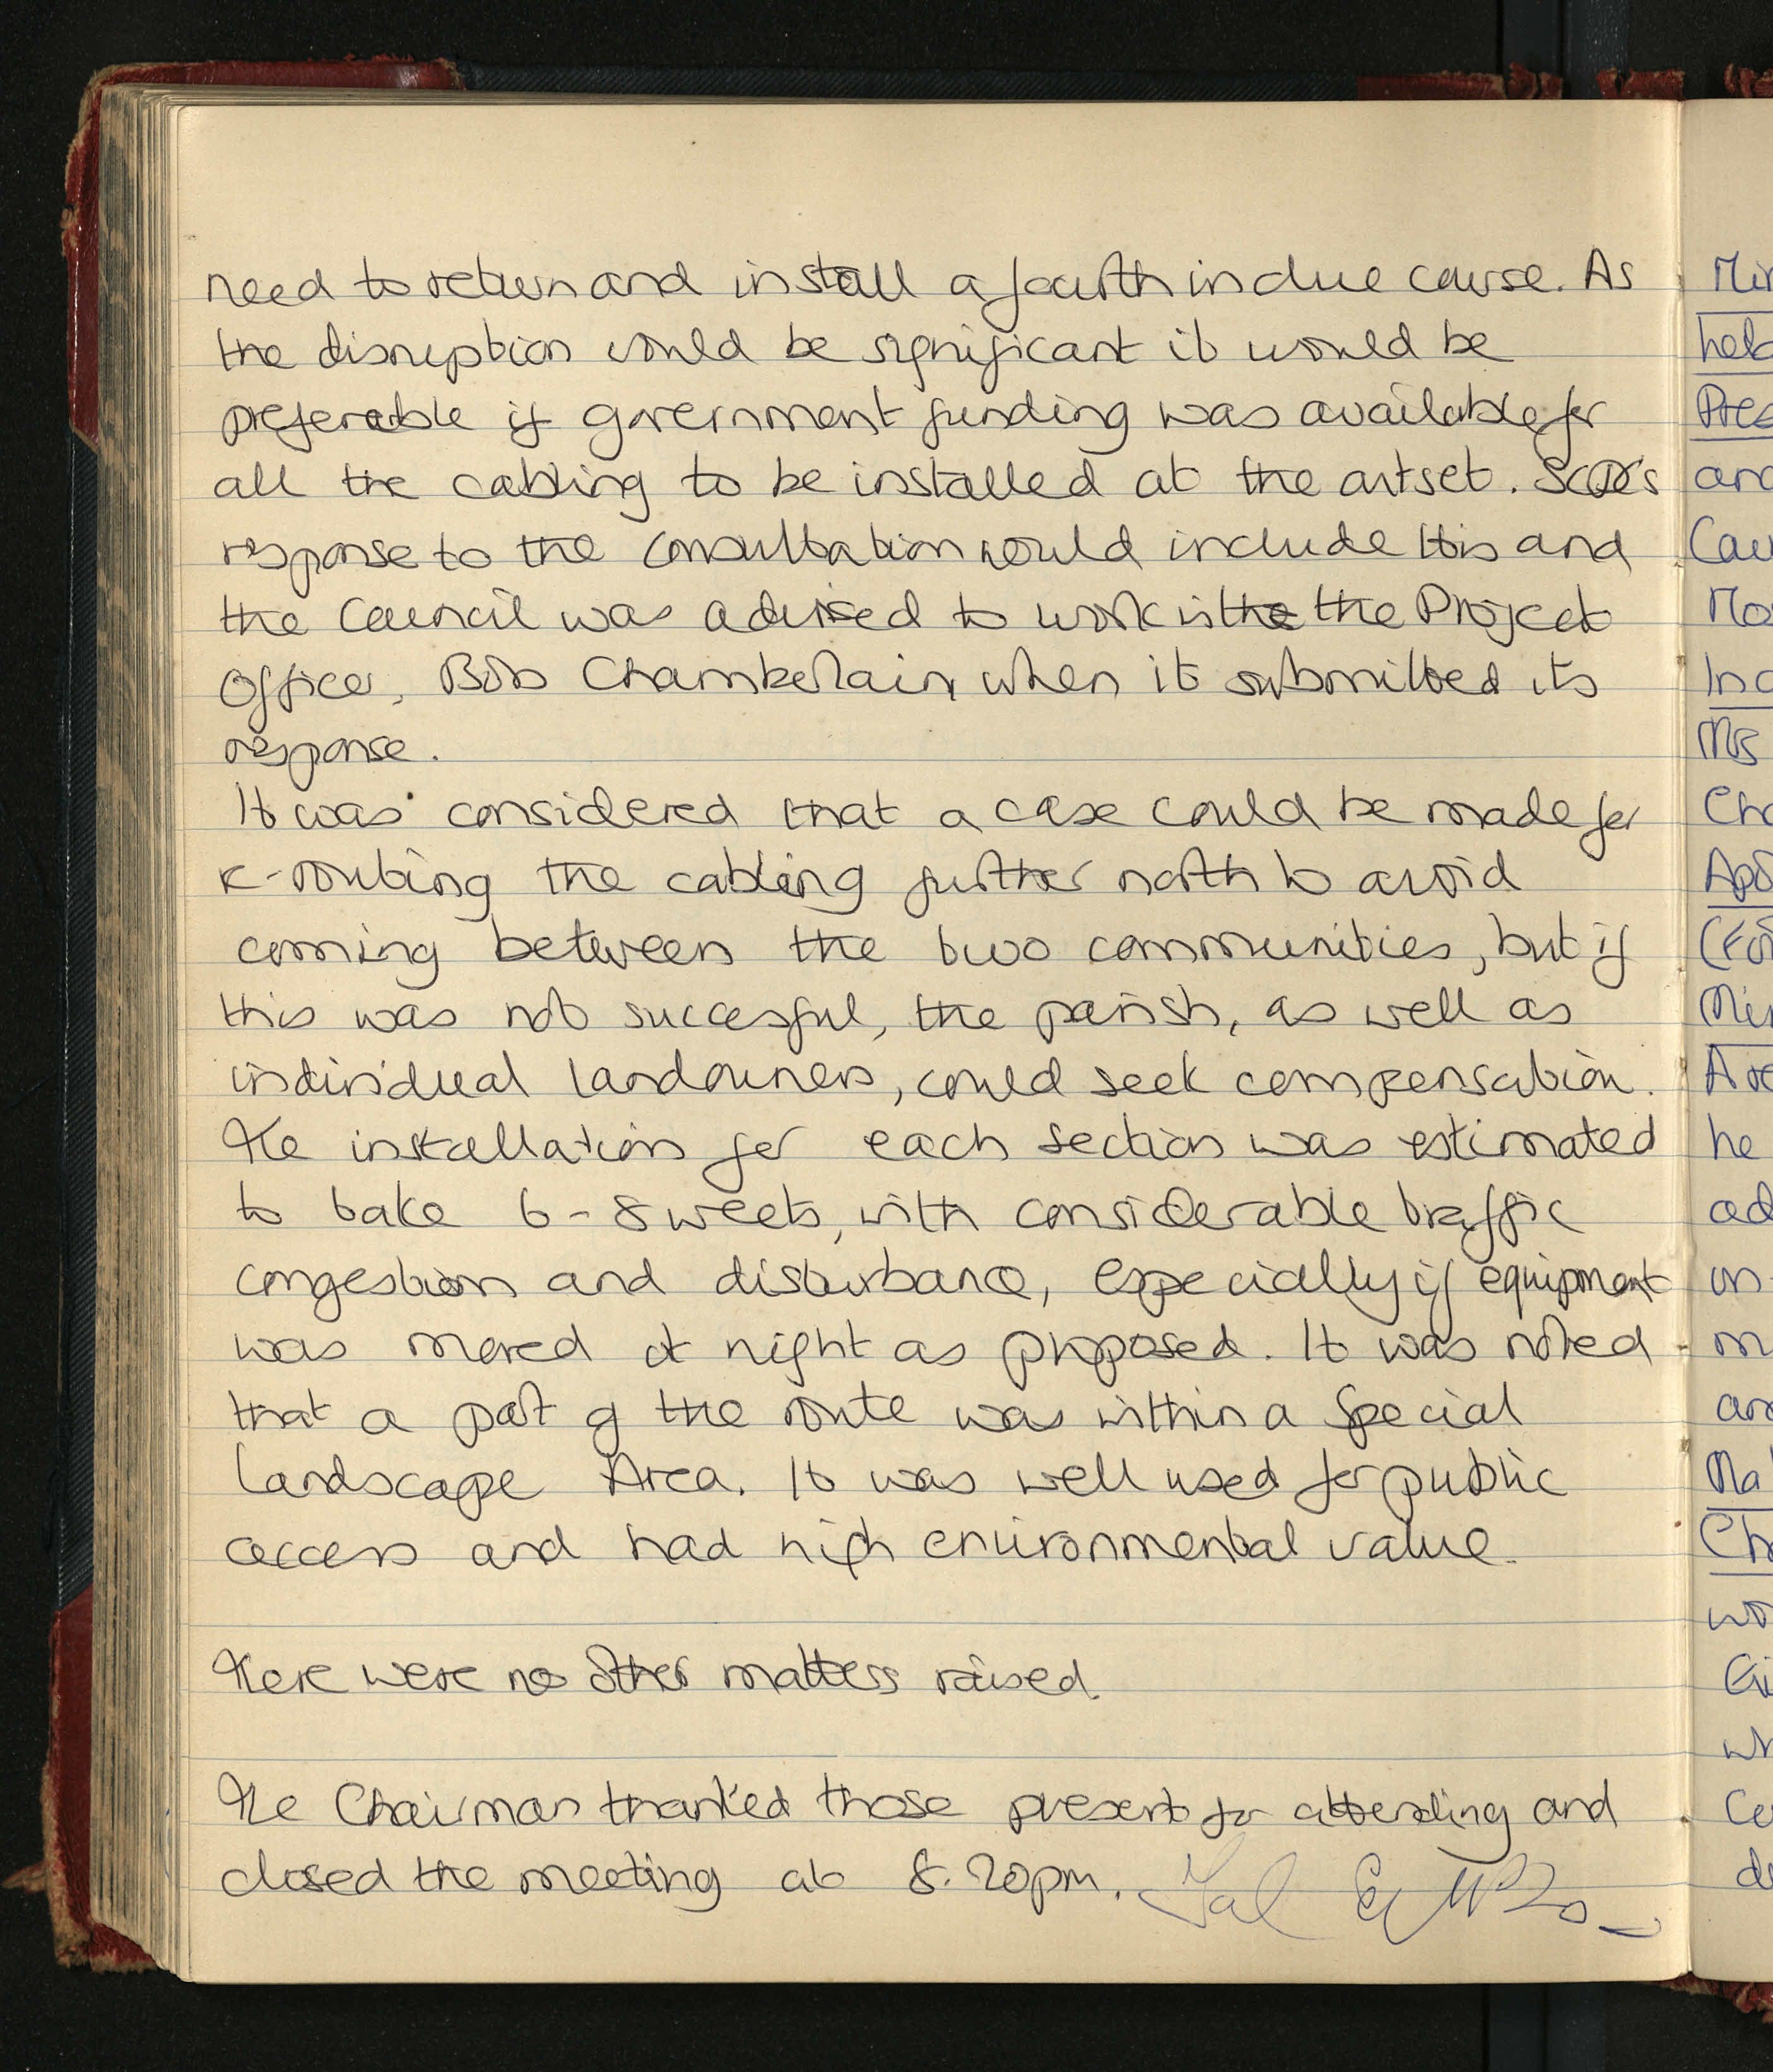 need to return and install a fourth in due course. As
the disruption would be significant it would be
preferable if government funding was available for
all the cabling to be installed at the outset. SCDC's
response to the consultation would include this and
the Council was advised to work with the Project
Officer, Bob Chamberlain, when it submitted its
response.
It was considered that a case could be made for
re-routing the cabling further north to avoid
coming between the two communities, but if
this was not succesful, the parish, as well as
individual landowners, could seek compensation.
The installation for each section was estimated
to take 6-8 weeks, with considerable traffic
congestion and disturbance, especially if equipment
was moved at night as proposed. It was noted
that a part of the route was within a Special
Landscape Area. It was well used for public
access and had high environmental value.
There were no other matters raised.
The Chairman thanked those present for attending and
closed the meeting at 8.20pm.
held
and
he